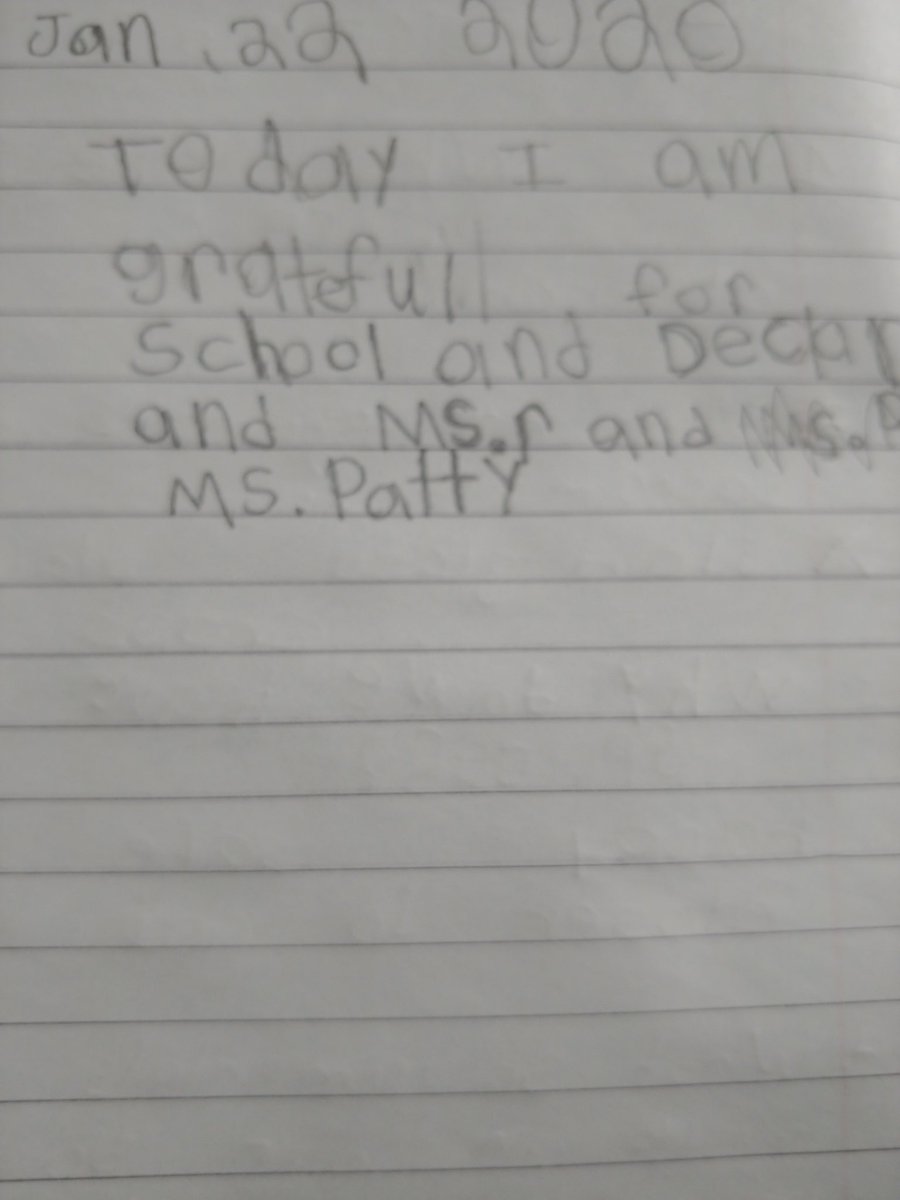 Jan. 22 2020
Today I am
grateful for
School and
and Ms.r and
Ms. Patty